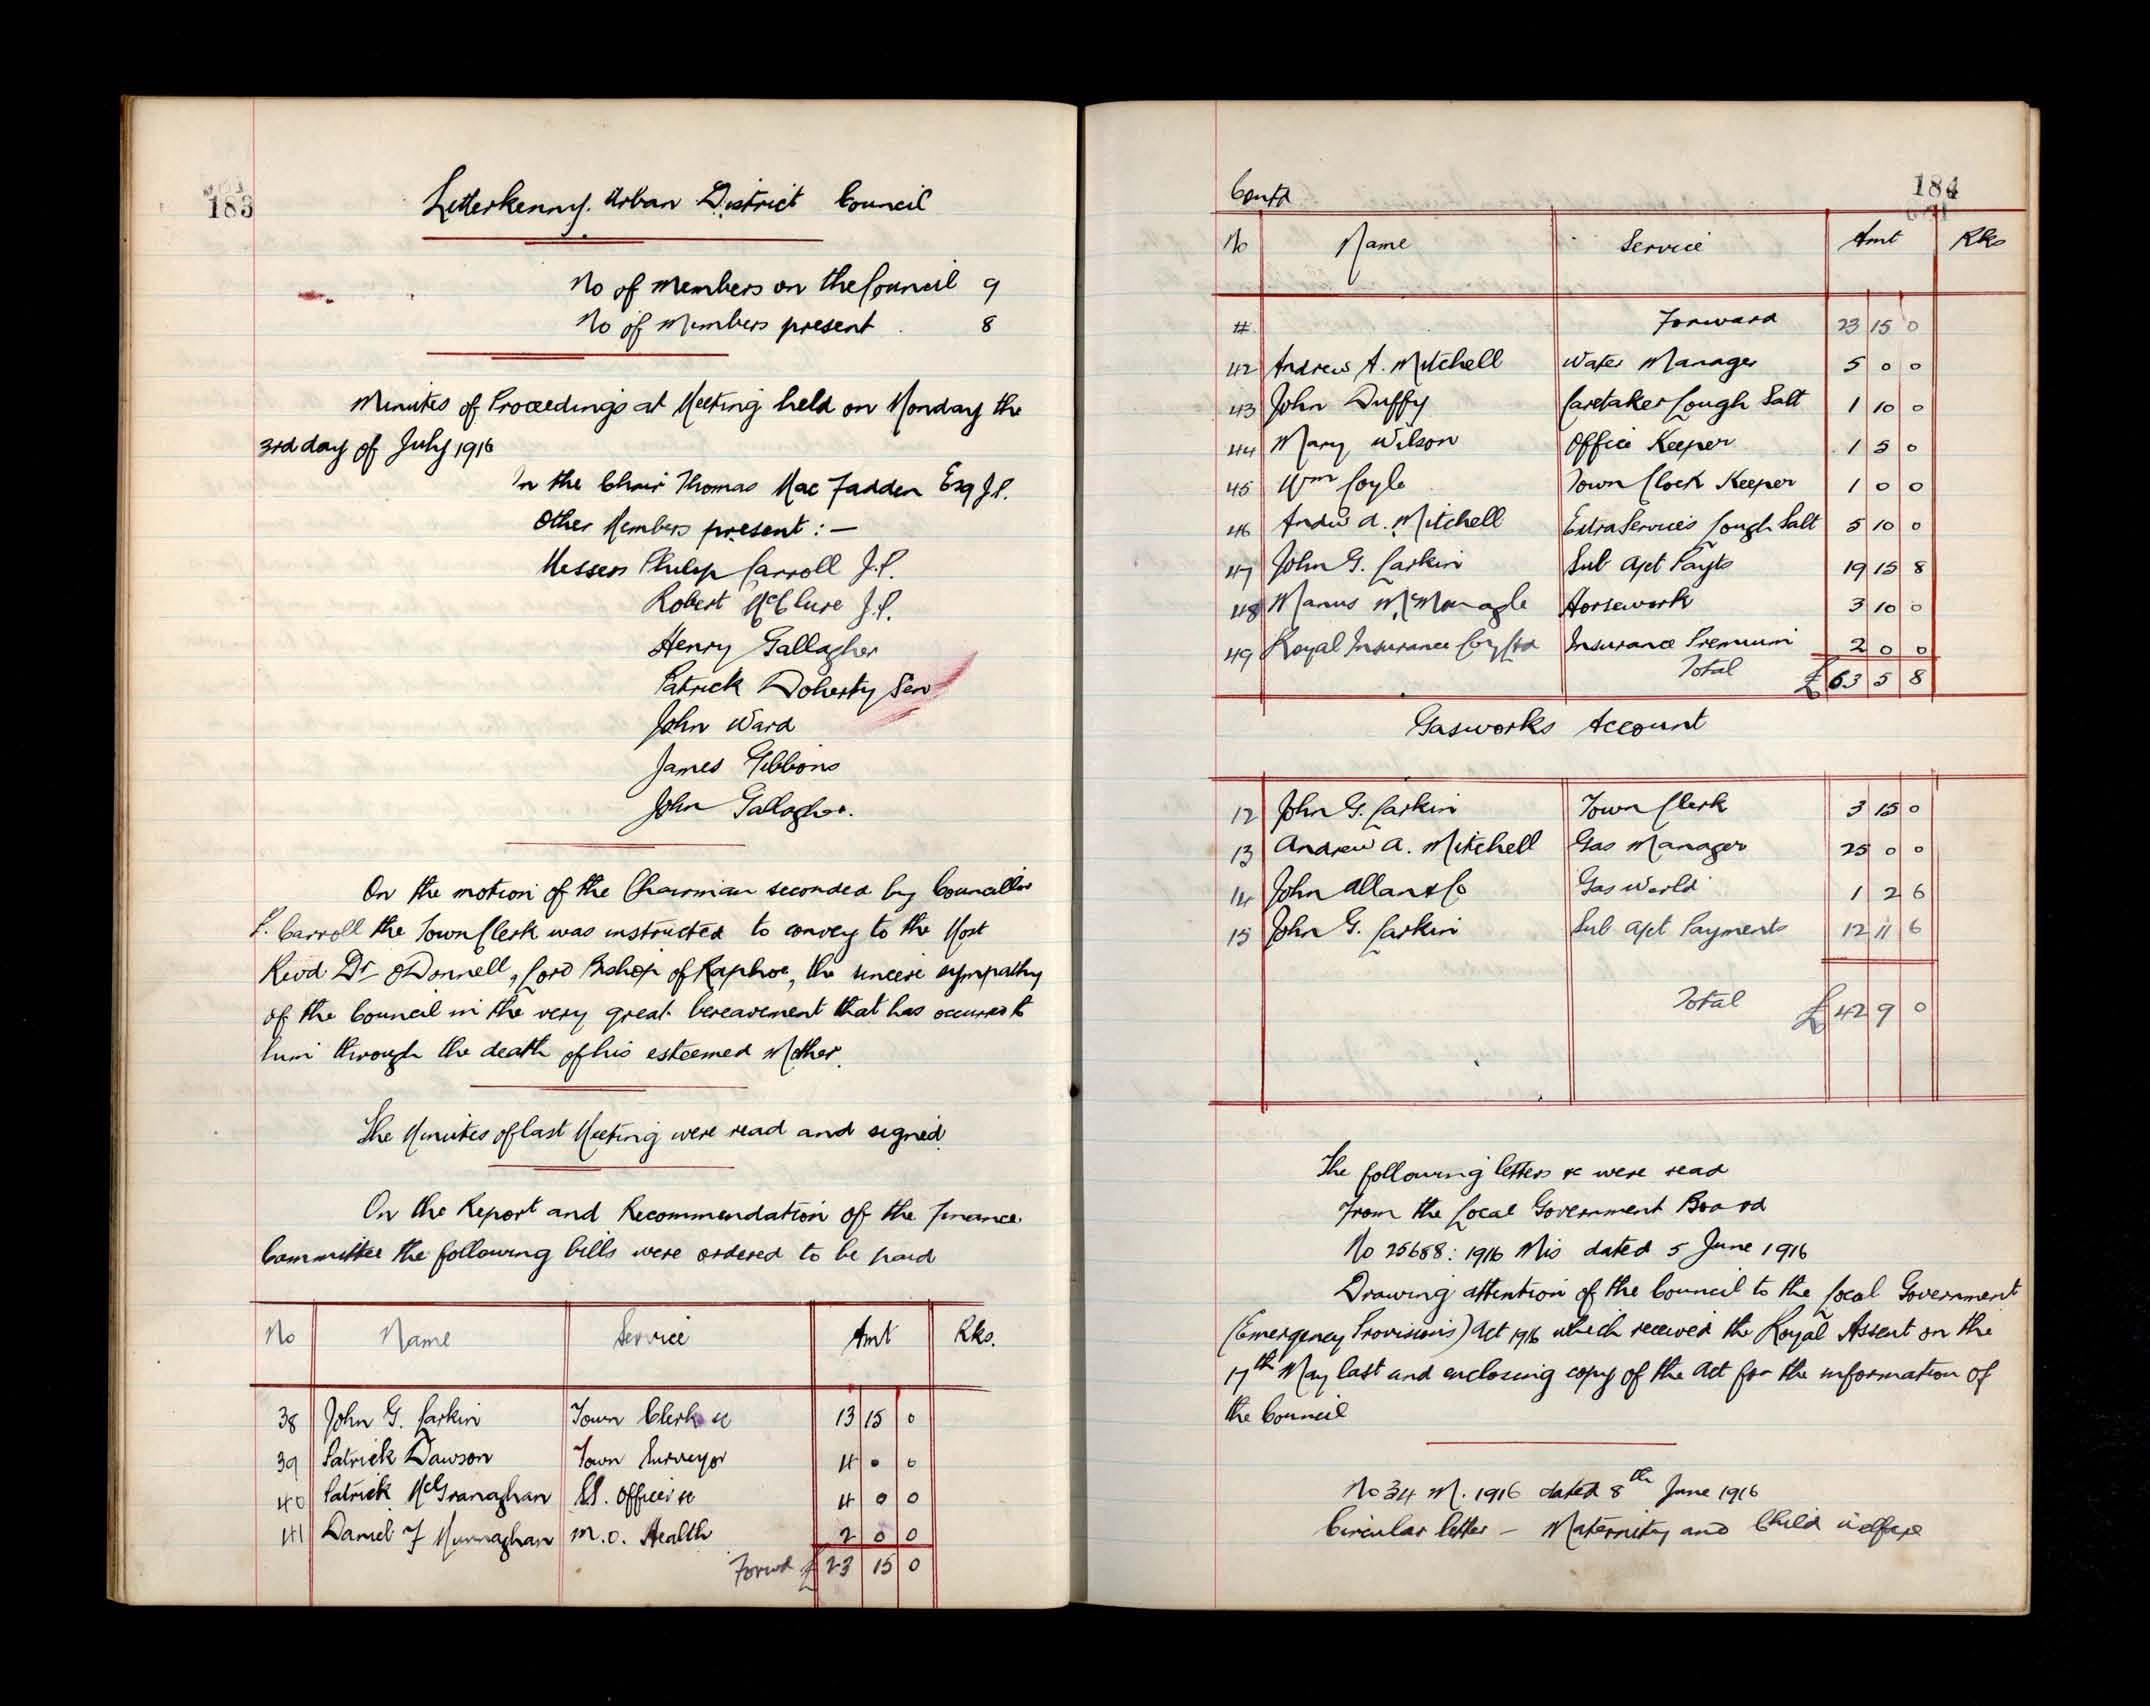 183
Letterkenny. Urban District Council
No of Members on the Council 9
No of Members present 8
Minutes of Proceedings at Meeting held on Monday the
3rd day of July 1916
In the Chair Thomas Mac Fadden Esq J.P.
Other Members present : —
Messrs Philip Carroll J.P.
Robert McClure J.P.
Henry Gallagher
Patrick Doherty Sen
John Ward
James Gibbons
John Gallagher.
On the motion of the Chairman seconded by Councillor
P. Carroll the Town Clerk was instructed to convey to the Most
Revd Dr O'Donnell, Lord Bishop of Raphoe, the sincere sympathy
of the Council in the very great bereavement that has occurred to
him through the death of his esteemed Mother.
The Minutes of last Meeting were read and signed.
On the Report and Recommendation of the Finance
Committee the following bills were ordered to be paid
No Name Service Amt Rks.
38 John G. Larkin Town Clerk &c 13 15 0
39 Patrick Dawson Town Surveyor 4 0 0
40 Patrick McGranaghan S.S. Officer &c 4 0 0
41 Daniel F M. O. Health 2 0 0
Forwd £ 23 15 0
184
Contd
No Name Service Amt Rks
# Forward 23 15 0
42 Andrew A. Mitchell Water Manager 5 0 0
43 John Duffy Caretaker Lough Salt 1 10 0
44 Mary Wilson Office Keeper 1 5 0
45 Wm Coyle Town Clock Keeper 1 0 0
46 Andw A. Mitchell Extra Services Lough Salt 5 10 0
47 John G. Larkin Sub a/ct Payts 19 15 8
48 Manus McMonagle Horsework 3 10 0
49 Royal Insurance Coy Ltd Insurance Premium 2 0 0
Total £ 63 5 8
Gasworks Account
12 John G. Larkin Town Clerk 3 15 0
13 Andrew A. Mitchell Gas Manager 25 0 0
14 John Allan & Co Gas World 1 2 6
15 John G. Larkin Sub a/ct Payments 12 11 6
Total £ 42 9 0
The following letters &c were read
From the Local Government Board
No 25688: 1916 Mis dated 5 June 1916
Drawing attention of the Council to the Local Government
(Emergency Provisions) Act 1916 which received the Royal Assent on the
17th May last and enclosing copy of the Act for the information of
the Council
No 34 M. 1916 dated 8th June 1916
Circular letter — Maternity and Child Welfare